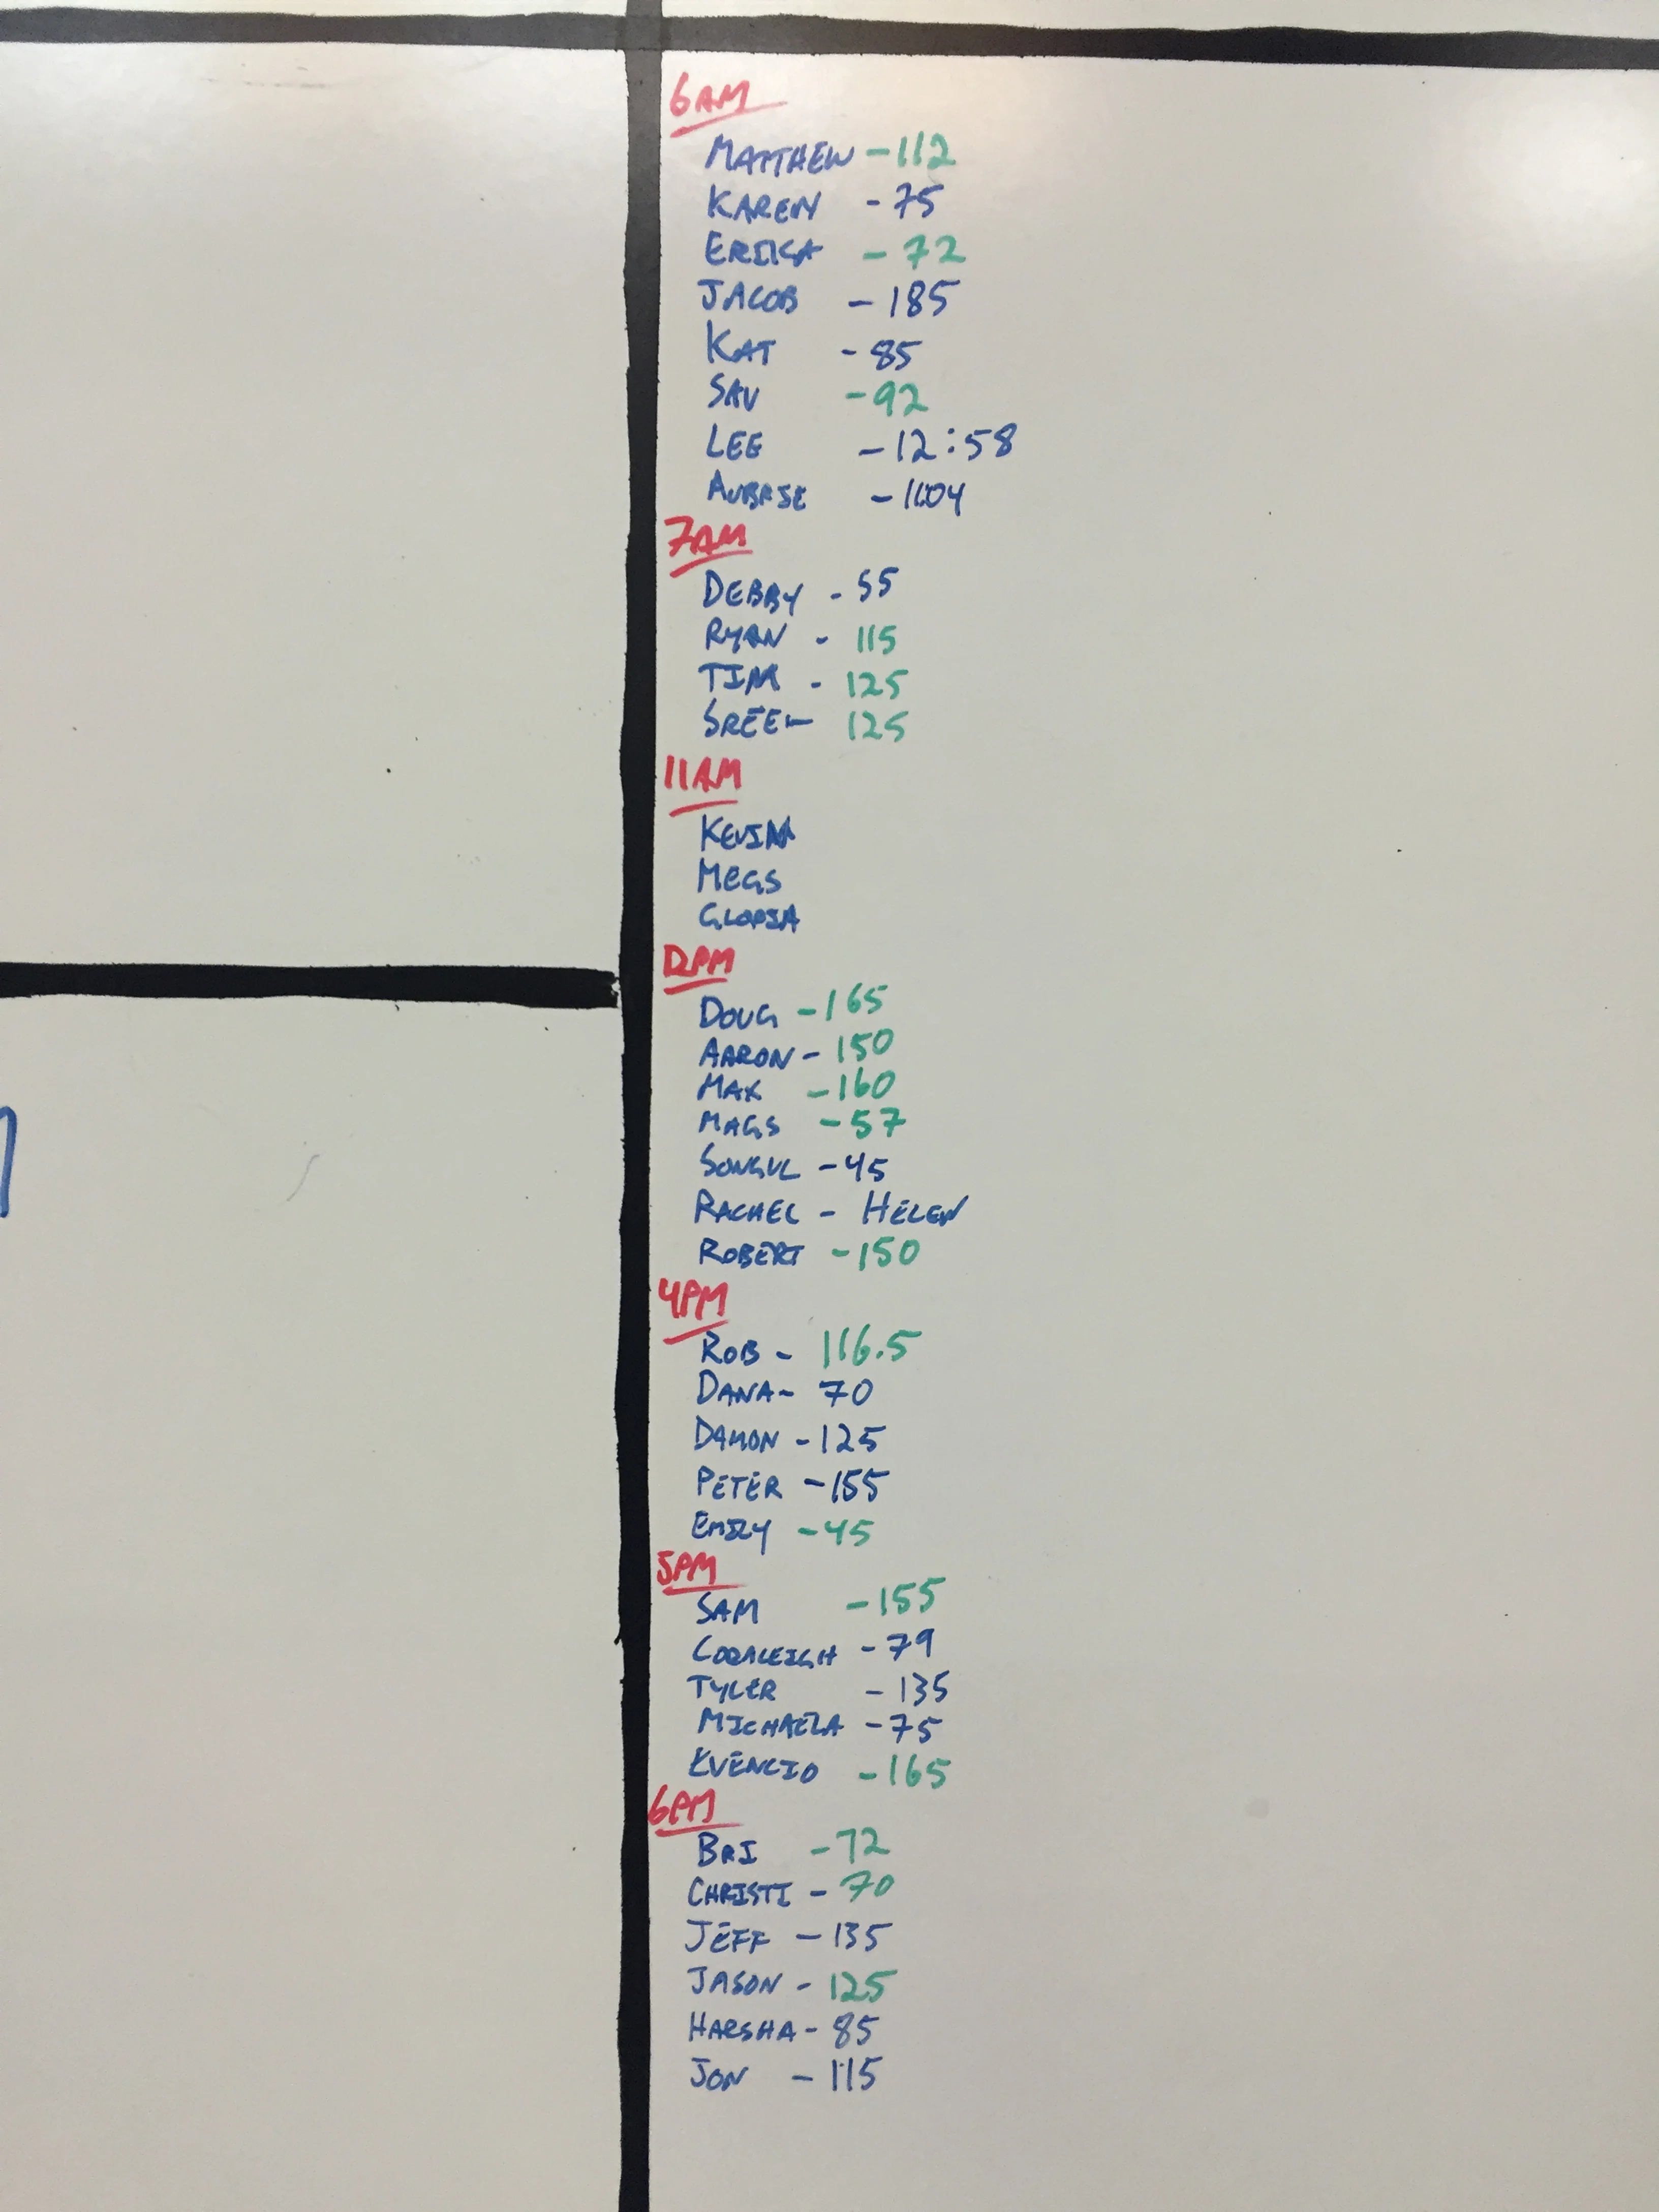 6AM
MATTHEW - 112
KAREN - 75
ERIKA - 72
JACOB - 185
KAT - 85
SAV - 92
LEE - 12:58
AUBRIE - 11:04
7AM
DEBBY - 55
RYAN - 115
TIM - 125
SREE - 125
11AM
KEVIN
MEGS
GLORIA
12PM
DOUG - 165
AARON - 150
MAX - 160
MAGS - 57
SONGUL - 45
RACHEL - HELEN
ROBERT - 150
4PM
ROB - 116.5
DANA - 70
DAMON - 125
PETER - 155
EMILY - 45
5PM
SAM - 155
CORALEIGH - 79
TYLER - 135
MICHAELA - 75
EVENCIO - 165
6PM
BRI - 72
CHRISTI - 70
JEFF - 135
JASON - 125
HARSHA - 85
JON - 115